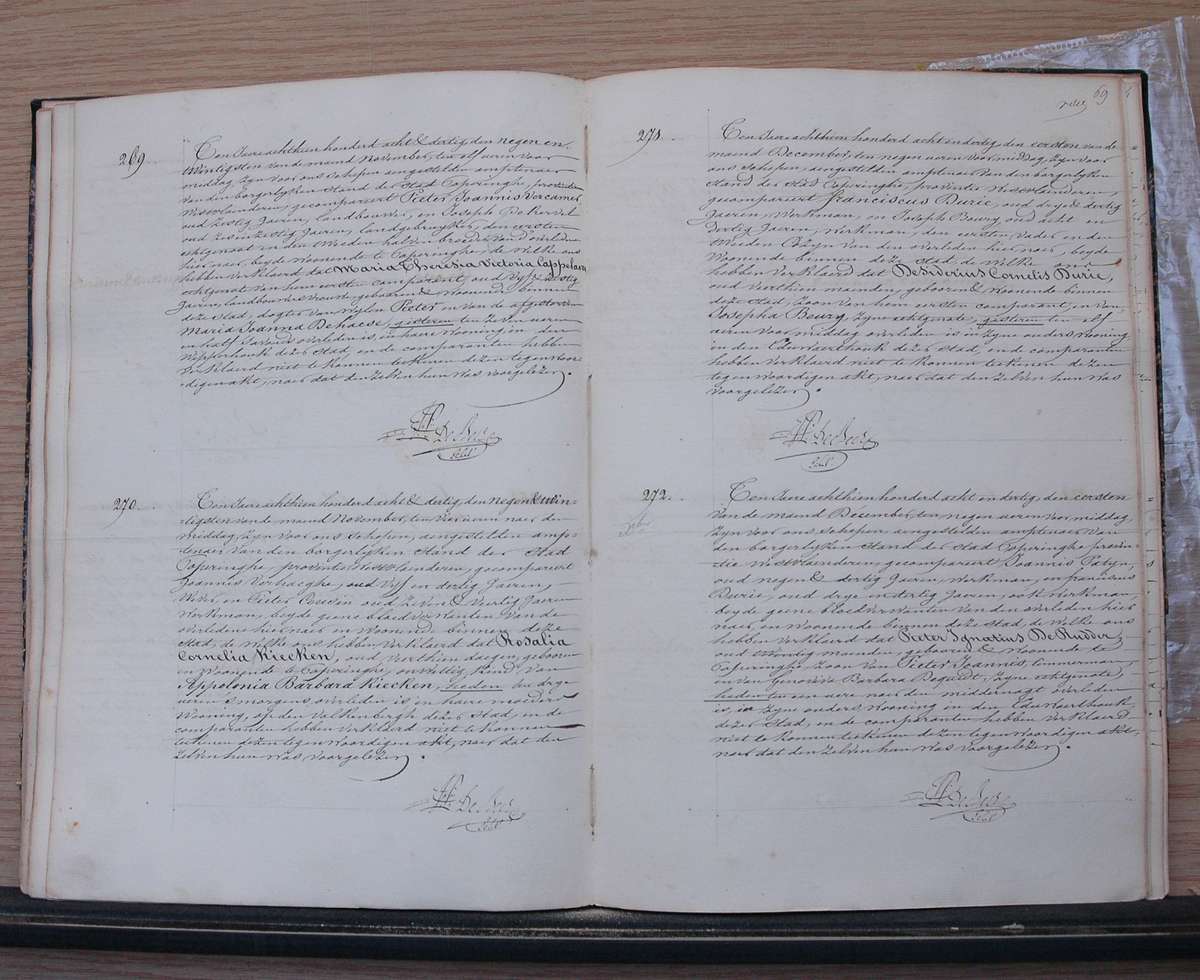 269.
Ten Jaere achthien honderd acht & dertig, den negen en
twintigsten van de maand November, ten elf ueren voor
middag, Zyn voor ons schepen aengestelden amptenaer
van den borgerlyken stand der stad Poperinghe, provintie
Westvlaenderen, gecompareert Pieter Joannis Vercamer
oud zestig Jaeren, landbouwer, en Joseph De
oud zes en zestig Jaeren, landgebruyker, den eersten
echtgenoot en den tweeden halven broeder van d'overledene
hier naer, beyde woonende te Poperinghe, de welke ons
hebben verklaerd dat Maria Theresia Victoria Cappelaere
echtgenote van hem eersten comparent, oud vyf & zestig
Jaeren, landbouwers vrouwe, gebooren & woonende binnen
deze stad, dogter van wylen Pieter en van de afgestorven
Maria Joanna Dehaese, gisteren ten zeven ueren
en half s'avonds overleden is, in haere wooning in den
Wipperhoek dezer stad, en de comparanten hebben
verklaerd niet te konnen teekenen dezen tegenwoor-
digen akt, naer dat den zelven hun was voorgelezen.
270.
Ten Jaere achthien honderd acht & dertig, den negen & twin-
tigsten van de maand November, ten vier ueren naer de
middag, Zyn voor ons schepen, aengestelden amp-
tenaer van den borgerlyken stand der stad
Poperinghe provintie Westvlaenderen, gecompareert
Joannis Verhaeghe, oud vyf en dertig Jaeren,
en Pieter oud zeven & veertig Jaeren
werkman, beyde geene bloedverwanten van de
overledene hier naer en woonende binnen deze
stad, de welke ons hebben verklaerd dat Rosalia
Cornelia Kiecken, oud veerthien dagen, gebooren
en woonende te Poperinghe, onwettig kind van
Appolonia Barbara Kiecken, heden ten drye
ueren s'morgens overleden is in haere moeders
wooning, op den Valkenbergh dezer stad, en de
comparanten hebben verklaerd niet te konnen
teekenen dezen tegenwoordigen akt, naer dat den
zelven hun was voorgelezen.
69
271.
Ten Jaere achthien honderd acht en dertig, den eersten van de
maand December, ten negen ueren voor middag, Zyn voor
ons schepen, aengestelden amptenaer van den borgerlyken
stand der stad Poperinghe, provintie Westvlaenderen,
gecompareert Franciscus Durie, oud drye & dertig
Jaeren, werkman, en Joseph Bourg, oud acht en
dertig Jaeren, werkman, den eersten vader en den
tweeden van den overleden hier naer, beyde
woonende binnen deze stad, de welke ons
hebben verklaerd dat Desiderius Cornelis Durie,
oud veerthien maenden, gebooren & woonende binnen
deze stad, zoon van hem eersten comparant, en van
Josepha Bourg, zyne echtgenote, gisteren ten elf
ueren voor middag overleden is in zyne ouders wooning
in den Eduwaerthoek dezer stad, en de comparanten
hebben verklaerd niet te konnen teekenen dezen
tegenwoordigen akt, naer dat den zelven hun was
voorgelezen.
272.
Ten Jaere achthien honderd acht en dertig, den eersten
van de maand December, ten negen ueren voor middag,
Zyn voor ons schepen, aengestelden amptenaer van
den borgerlyken stand der stad Poperinghe provin-
tie Westvlaenderen, gecompareert Joannis Patyn,
oud negen & dertig Jaeren, werkman, en Franciscus
Durie, oud drye en dertig Jaeren, ook werkman,
beyde geene bloedverwanten van den overleden hier
naer, en woonende binnen deze stad, de welke ons
hebben verklaerd dat Pieter Ignatius De Rudder,
oud twintig maenden, gebooren & woonende te
Poperinghe zoon van Pieter Joannis, timmerman
en van Genoveva Barbara Beguidt, zyne echtgenote,
heden ten een uere naer den middernagt overleden
is in zyne ouders wooning in den Eduwaerthoek
dezer stad, en de comparanten hebben verklaerd
niet te konnen teekenen dezen tegenwoordigen akt,
naer dat den zelven hun was voorgelezen.